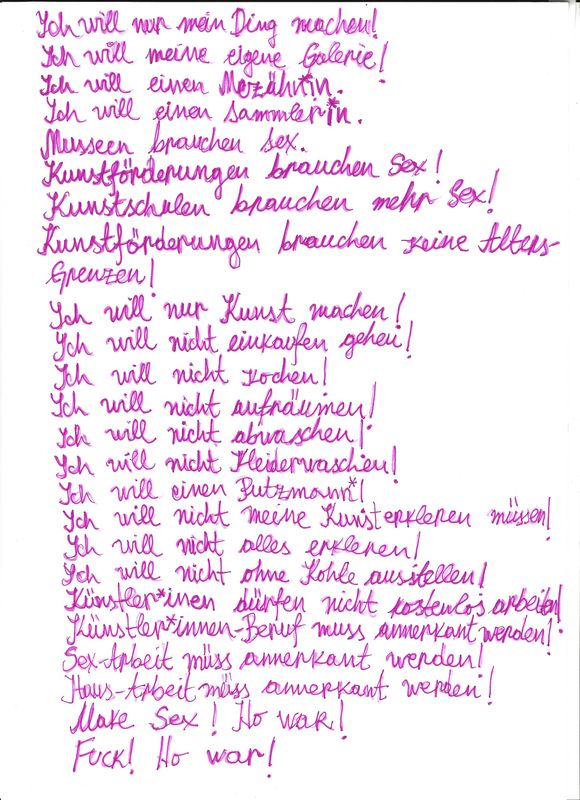 Ich will nur mein Ding machen!
Ich will meine eigene Galerie!
Ich will einen Mezähn*in.
Ich will einen Sammler*in.
Musseen brauchen sex.
Kunstförderungen brauchen Sex!
Kunstschulen brauchen mehr Sex!
Kunstförderungen brauchen keine Alters-
Grenzen!
Ich will nur Kunst machen!
Ich will nicht einkaufen gehen!
Ich will nicht kochen!
Ich will nicht aufräumen!
Ich will nicht abwaschen!
Ich will nicht Kleiderwaschen!
Ich will einen Putzmann*!
Ich will nicht meine Kunsterkleren müssen!
Ich will nicht alles erkleren!
Ich will nicht ohne Kohle ausstellen!
Künstler*inen dürfen nicht kostenlos arbeiten!
Künstler*innen-Beruf muss annerkant werden!
Sex-Arbeit müss annerkant werden!
Haus-Arbeit müss annerkant werden!
Make Sex! No war!
Fuck! No war!